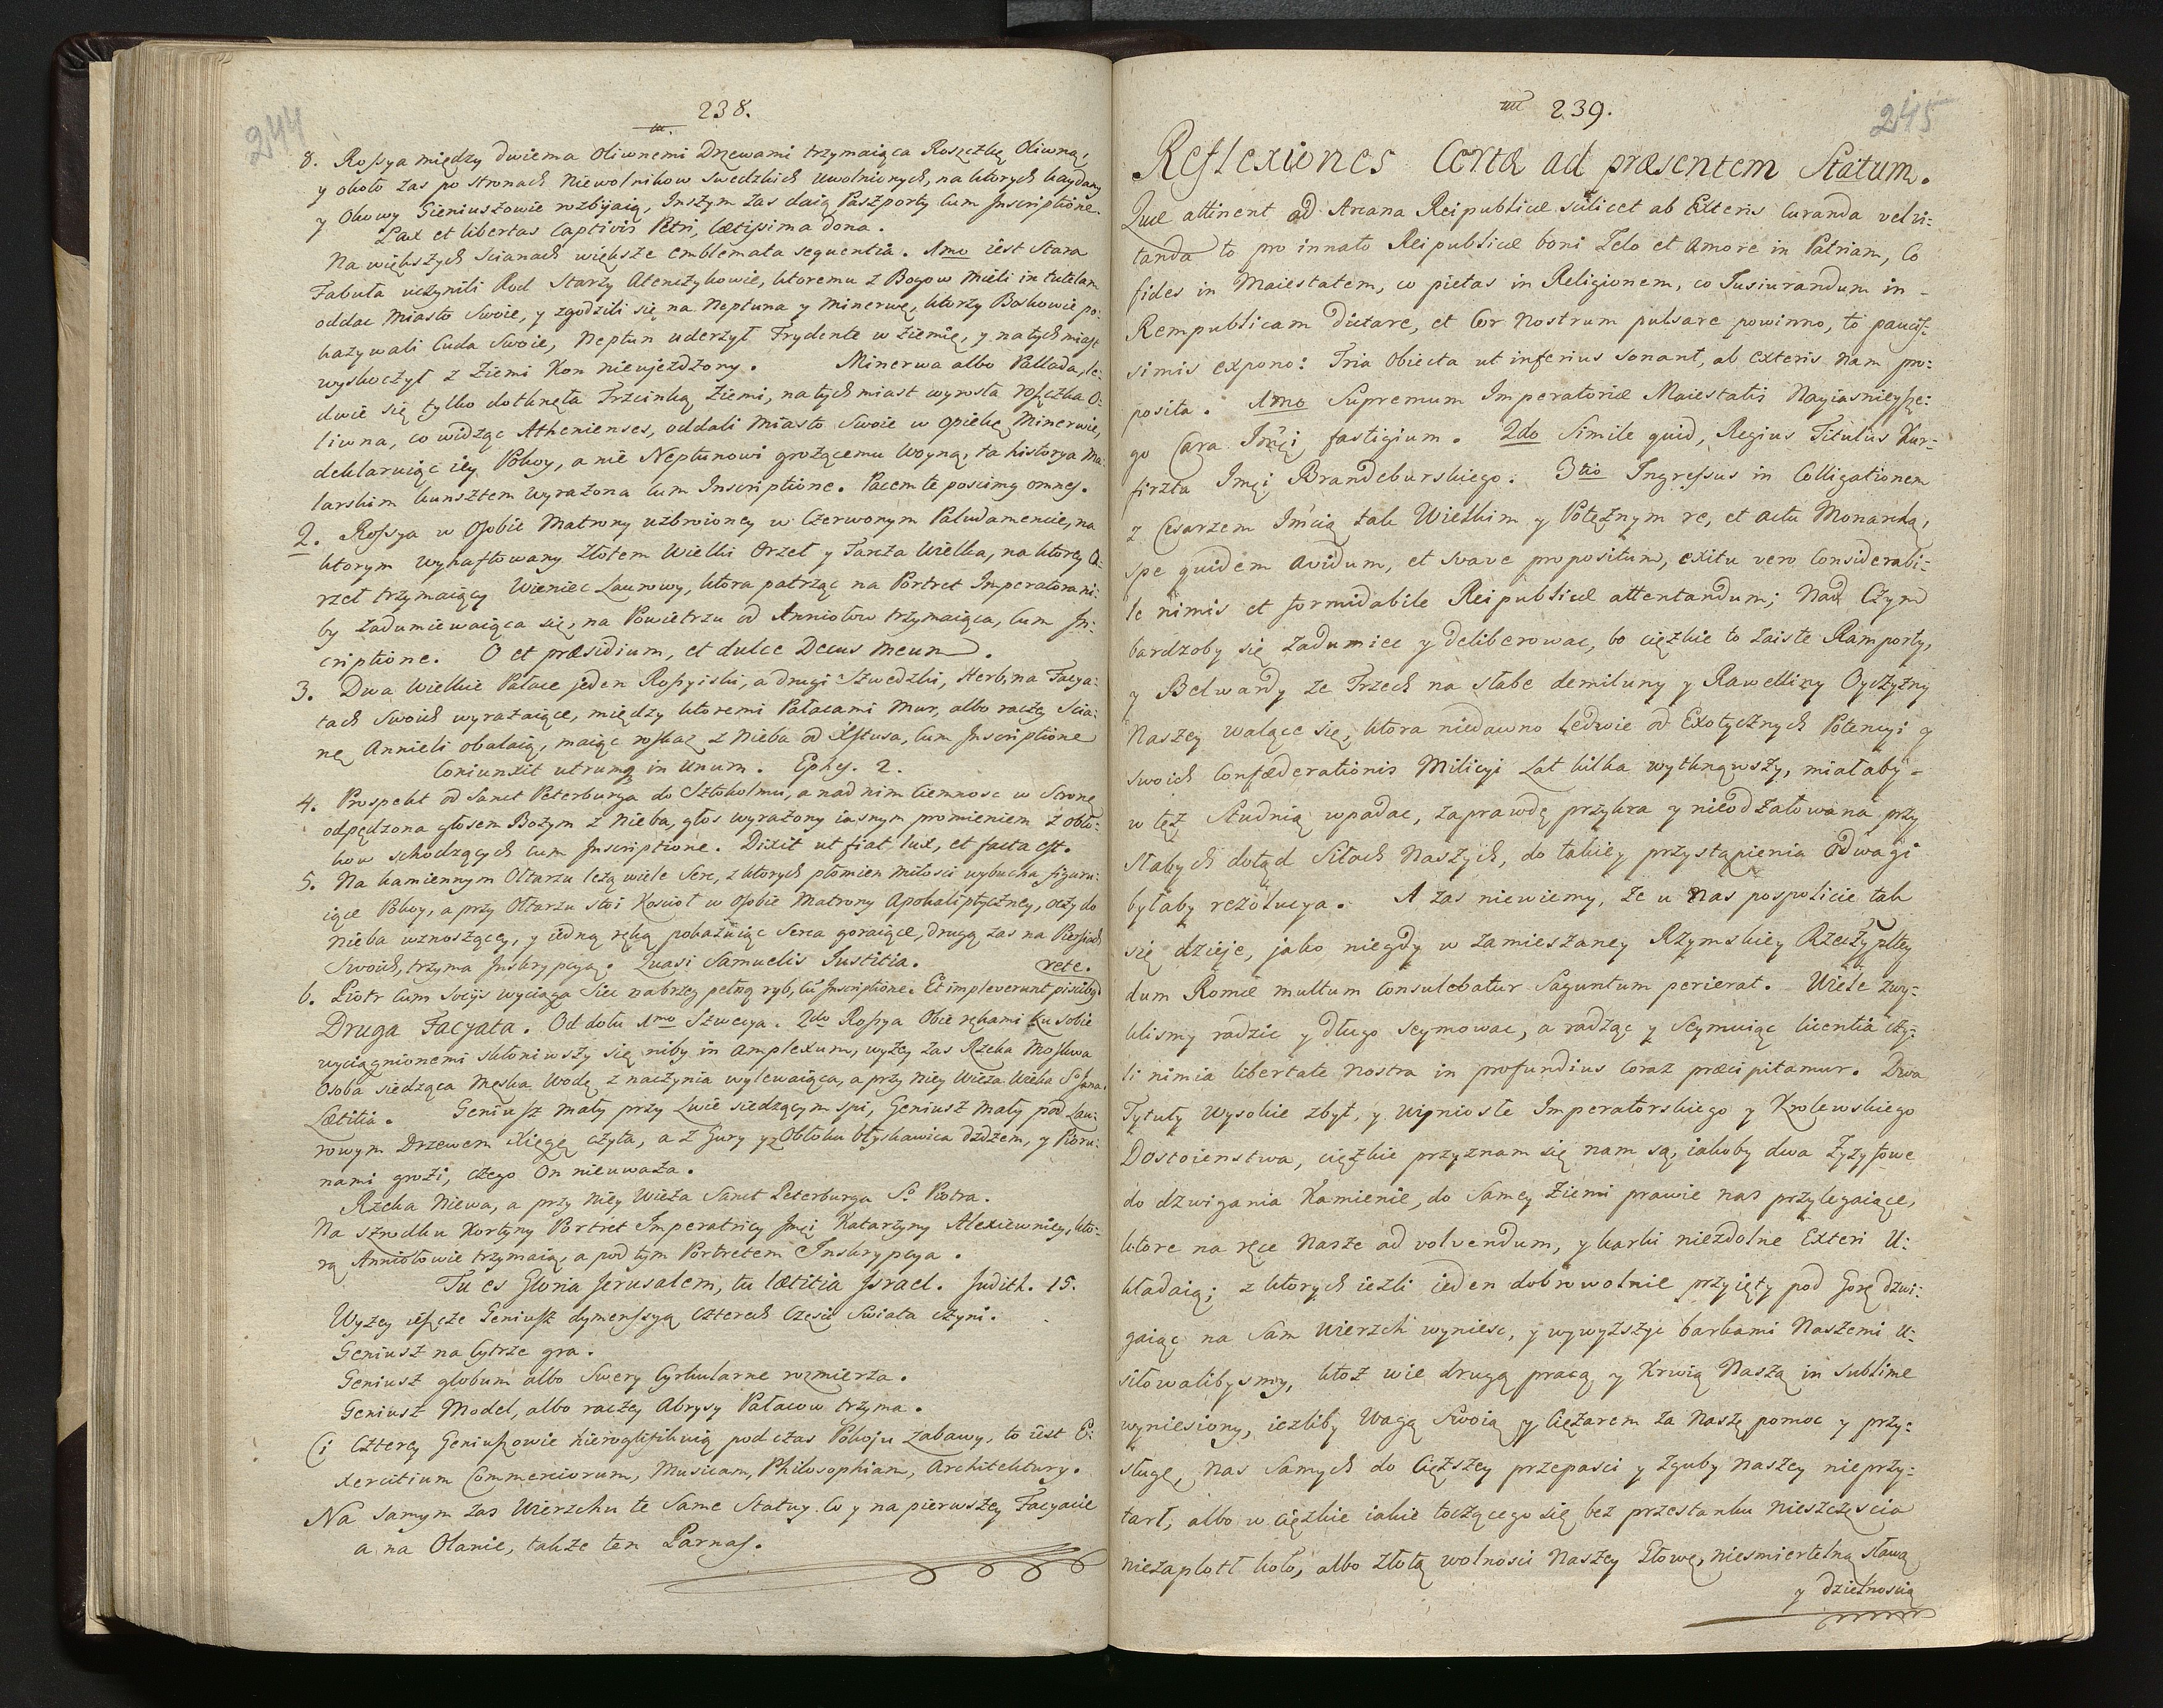 244
238.
8. Rossya między dwiema Oliwnemi Drzewami trzymaiąca Roszczkę Oliwną,
y około zas po stronach Niewolnikow Swedzkich uwolnionych, na ktorych kaydany
y Okowy Gieniuszowie rozbijaią, Inszym zas daią Paszporty cum Inscriptione.
Pax et libertas captivis Petri, lætissima dona.
Na większych scianach większe emblemata sequentia. 1mo iest Stara
Fabuła uczynili Rod Starzy Atenczykowie, ktoremu z Bogow mieli in tutelam
oddac Miasto Swoie, y zgodzili się na Neptuna y Minerwę, ktorzy Boskowie po:
kazywali Cuda Swoie, Neptun uderzył Trydente w Ziemię, y natychmiast
wyskoczył z Ziemi Kon nieujeżdzony. Minerwa albo Pallada, le:
dwie się tylko dotknęła Trzcinką Ziemi, natychmiast wyrosła roszczka O:
liwna, co widząc Athenienses, oddali Miasto Swoie w opiekę Minerwie,
deklaruiąc iey Pokoy, a nie Neptunowi grożącemu woyną, ta historya Ma:
larskim kunsztem wyrażona cum Inscriptione. Pacem te poscimq omnes.
2. Rossya w Osobie Matrony uzbroioney w Czerwonym Paludamencie, na
ktorym wyhaftowany Złotem Wielki Orzeł y Tarcza Wielka, na ktorey O:
rzeł trzymaiący Wieniec Laurowy, ktora patrząc na Portret Imperatora ni:
by zadumiewaiąca się, na Powietrzu od Anniołow trzymaiąca, cum In:
criptione. O et præsidium, et dulce Decus meum.
3. Dwa Wielkie Pałace jeden Rossyiski, a drugi Szwedzki, Herb, na Facya:
tach Swoich wyrażaiące, między ktoremi Pałacami Mur, albo raczey Scia:
nę Annieli obalaią, maiąc roskaz z Nieba od Xstusa, cum Inscriptione
Coniunxit utrumq in Unum. Ephes. 2.
4. Prospekt od Sanct Peterburga do Sztokolmu, a nad nim Ciemnosc w Stronę
odpędzona głosem Bożym z Nieba, głos wyrażony iasnym promieniem z obło:
kow schodzących cum Inscriptione. Dixit ut fiat lux, et facta est.
5. Na kamiennym Ołtarzu leżą wiele Serc, z ktorych płomien miłosci wybucha figuru:
iące Pokoy, a przy Ołtarzu stoi Koscioł w osobie Matrony Apokaliptyczney, oczy do
nieba wznoszącey, y iedną ręką pokazuiąc Serca goraiące, drugą zas na Piersiach
Swoich, trzyma Inskrypcyą. Quasi Samuelis Iustitia. rete.
6. Piotr cum Socijs wyciąga Siec nabrzeg pełną ryb, cu Inscriptione. Et impleverunt piscibq
Druga Facyata. Od dołu 1mo Szwecya. 2do Rossya Obie rękami ku sobie
wyciągnionemi skłoniwszy się niby in amplexum, wyżey zas Rzeka Moskwa
Osoba siedząca Męska Wodę z naczynia wylewaiąca, a przy Niey Wieza Wielka S. Jana.
Lætitia. Geniusz mały przy Lwie siedzącym spi, Geniusz Mały pod Lau:
rowym Drzewem Xięgę czyta, a z Gury y z Obłoku błyskawica dżdżem, y Pioru:
nami grozi, czego On nieuważa.
Rzeka Niewa, a przy Niey Wieża Sanct Peterburga So Piotra.
Na szrodku Kortyny Portret Imperatricy Imci Katarzyny Alexiewniey, kto:
rą Anniołowie trzymaią, a pod tym Portretem Inskrypcya.
Tu es Gloria Jerusalem, tu lætitia Israel. Judith. 15.
Wyzey ieszcze Geniusz dymensyą czterech Częsci Swiata czyni.
Geniusz na Cytrze gra.
Geniusz globum albo Swery Cyrkularne rozmierza.
Geniusz Model, albo raczey Abrysy Pałacow trzyma.
Ci Czterey Geniuszowie hieroglifikuią podczas Pokoju zabawy, to iest E:
xercitium Commerciorum, Musicam, Philosophiam, Architekturę.
Na samym zas Wierzchu te Same Statuy Co y na pierwszey Facyacie
a na Olanie, takze ten Parnas.
245
239.
Reflexiones Certæ ad præsentem Statum.
Quæ attinent ad Arcana Reipublicæ scilicet ab Exteris Curanda vel vi:
tanda to pro innato Reipublicæ boni Zelo et Amore in Patriam, Co
fides in Maiestatem, co pietas in Religionem, co Iusiurandum in -
Rempublicam dictare, et Cor Nostrum pulsare powinno, to paucis:
simis expono: Tria Obiecta ut inferius sonant, ab exteris nam pro:
posita. 1mo Supremum Imperatoriæ Maiestatis Nayiasnieysze:
go Cara Imci fastigium. 2do Simile quid, Regius Titulus Kur:
firszta Imci Brandeburskiego. 3tio Ingressus in Colligationem
z Cesarzem Imcią tak Wielkim y Potężnym re, et actu Monarchą,
spe quidem avidum, et suave propositum, exitu vero Considerabi:
le nimis et formidabile Reipublicæ attentandum; Nad Czym
bardzoby się zadumiec y deliberowac, bo cięzkie to zaiste Ramporty,
y Belwardy ze Trzech na słabe demiluny y Rawelliny Oyczyzny
Naszey walące się, ktora niedawno ledwie od Exotycznych Potencyi y
swoich Confæderationis Milicyi Lat kilka wytknąwszy, miałaby -
w tęż Studnią wpadac, zaprawdę przykra y nieodżałowana, przy
słabych dotąd Siłach Naszych, do takiey przystąpienia Odwagi
byłaby rezolucya. A zas niewiemy, że u Nas pospolicie tak
się dzieje, jako niegdy w zamieszaney Rzymskiey Rzeczypltey
dum Romæ multum Consulebatur Saguntum perierat. Wiele zwy:
klismy radzic y długo Seymowac, a radząc y Seymuiąc licentia czy:
li nimia libertate nostra in profundius coraz præcipitamur. Dwa
Tytuły Wysokie zbyt, y wyniosłe Imperatorskiego y Krolewskiego
Dostoienstwa, cięzkie przyznam się nam są, iakoby dwa Zyzyfowe
do dzwigania Kamienie, do Samey Ziemi prawie nas przylegaiące,
ktore na ręce Nasze ad volvendum, y karki niezdolne Exteri U:
kładaią; z ktorych iezli ieden dobrowolnie przyięty pod Gorę dzwi:
gaiąc na Sam Wierzch wyniesc, y wywyższyc barkami Naszemi u:
siłowalibysmy, ktoż wie drugą pracą y Krwią Naszą in Sublime
wyniesiony, iezliby Wagą Swoią y Ciężarem za Naszę pomoc y przy:
sługę, nas Samych do Cięższey przepasci y Zguby Naszey nieprzy:
tarł, albo w cięzkie iakie toczącego się bez przestanku nieszczęscia
niezaplotł koło, albo złotą wolnosci Naszey Głowę, niesmiertelną sławą
y dzielnoscią